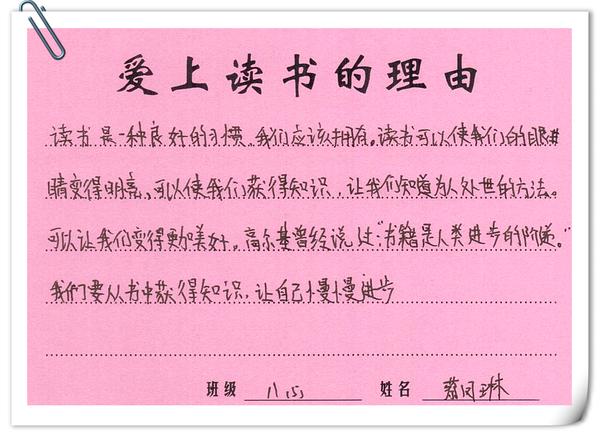 爱上读书的理由
读书是一种良好的习惯,我们应该拥有。读书可以使我们的眼
睛变得明亮,可以使我们获得知识,让我们知道为人处世的方法。
可以让我们变得更加美好。高尔基曾经说过“书籍是人类进步的阶梯。”
我们要从书中获得知识,让自己慢慢进步
班级 姓名